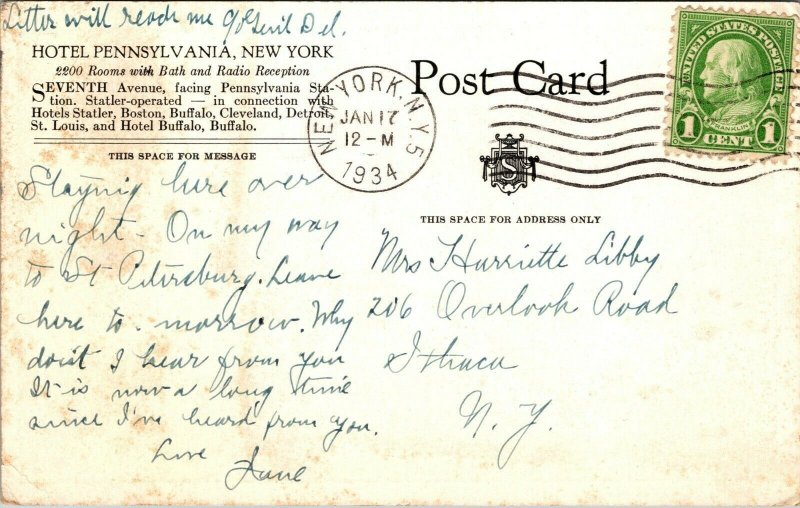 Litter will reach me Genl Del.
HOTEL PENNSYLVANIA, NEW YORK
2200 Rooms with Bath and Radio Reception
SEVENTH Avenue, facing Pennsylvania Sta-
tion. Statler-operated — in connection with
Hotels Statler, Boston, Buffalo, Cleveland, Detroit,
St. Louis, and Hotel Buffalo, Buffalo.
THIS SPACE FOR MESSAGE
Post Card
NEW YORK, N.Y. 5
JAN 17
12-M
1934
UNITED STATES POSTAGE
FRANKLIN
1 CENT 1
S
THIS SPACE FOR ADDRESS ONLY
Staynig here over
night - On my way
to St Petersburg. Leave
here to-morrow. Why
don't I hear from you
It is now a long time
since I've heard from you.
Love
Jane
Mrs Harriette Libby
206 Overlook Road
Ithaca
N. Y.